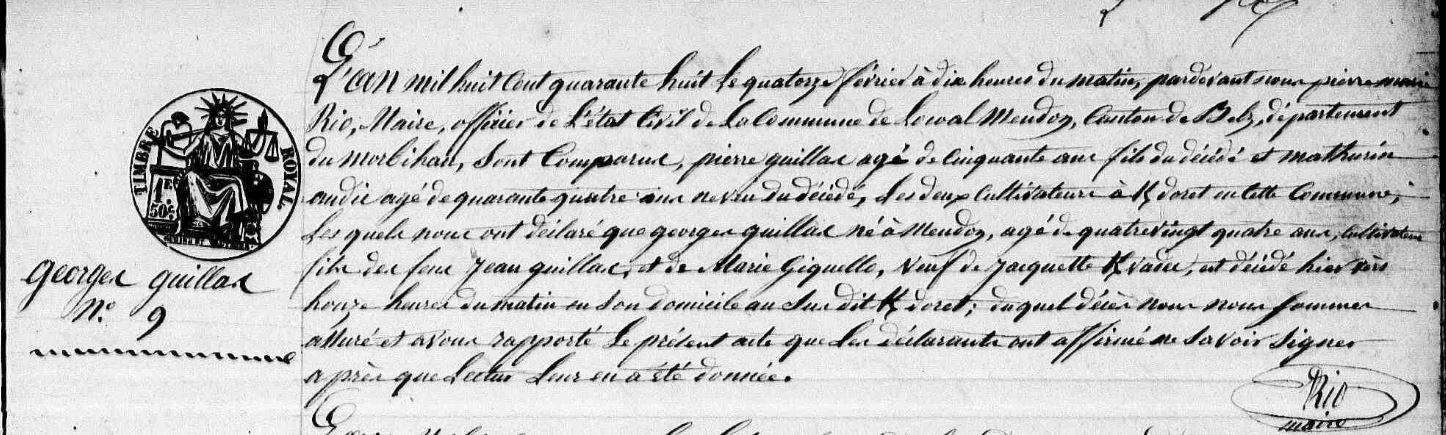 TIMBRE ROYAL
1F. 50c.
georges guillas
N.º 9
L'an mil huit cent quarante huit le quatorze février à dix heures du matin, pardevant nous pierre marie
Rio, Maire, officier de l'état Civil de la Commune de Locoal Mendon, Canton de Belz, département
du morbihan, Sont Comparus, pierre guillas agé de Cinquante ans fils du décédé et mathurin
audic agé de quarante quatre ans neveu du décédé, les deux Cultivateurs à K/doret en Cette Commune,
les quels nous ont déclaré que georges guillas né à Mendon, agé de quatrevingt quatre ans, Cultivateur
fils des feus Jean guillas, et de Marie Giquello, Veuf de Jacquette K/vadec, est décédé hier vers
honze heures du matin en Son domicile au Sus dit K/doret; duquel décès nous nous Sommes
assuré et avons rapporté le présent acte que les déclarants ont affirmé ne Savoir Signer
après que lecture leur en a été donnée.
Rio
maire